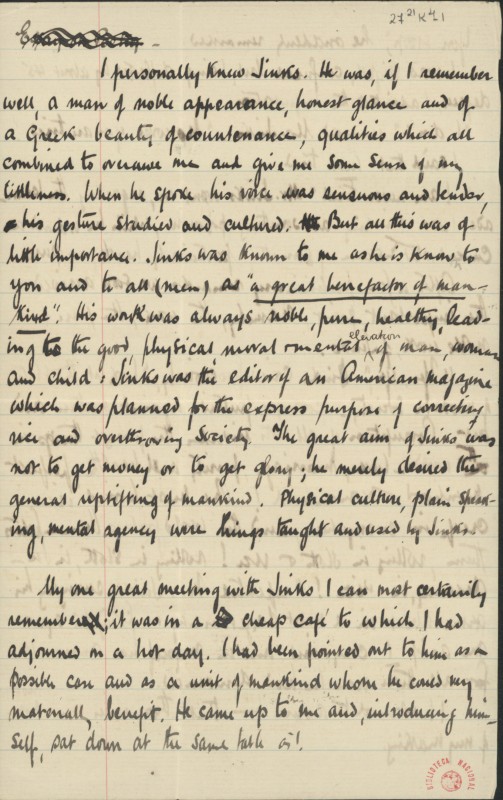 27 21 K4 1
I personally knew Jinks. He was, if I remember
well, a man of noble appearance, honest glance and of
a Greek beauty of countenance, qualities which all
combined to overawe me and give me some sense of my
littleness. When he spoke his voice was sensuous and tender,
his gesture studied and cultured. But all this was of
little importance. Jinks was known to me as he is know to
you and to all (men) as "a great benefactor of man-
kind". His work was always noble, pure, healthy, lead-
ing to the good, physical, moral mental elevation of man, woman
and child: Jinks was the editor of an American magazine
which was planned for the express purpose of correcting
vice and overthrowing Society. The great aim of Jinks was
not to get money or to get glory; he merely desired the
general uplifting of mankind. Physical culture, plain speak-
ing, mental agency were things taught and used by Jinks.
My one great meeting with Jinks I can most certainly
remember; it was in a cheap café to which I had
adjourned on a hot day. I had been pointed out to him as a
possible case and as a unit of mankind whom he could very
materially benefit. He came up to me and, introducing him-
self, sat down at the same table as I.
BIBLIOTECA NACIONAL